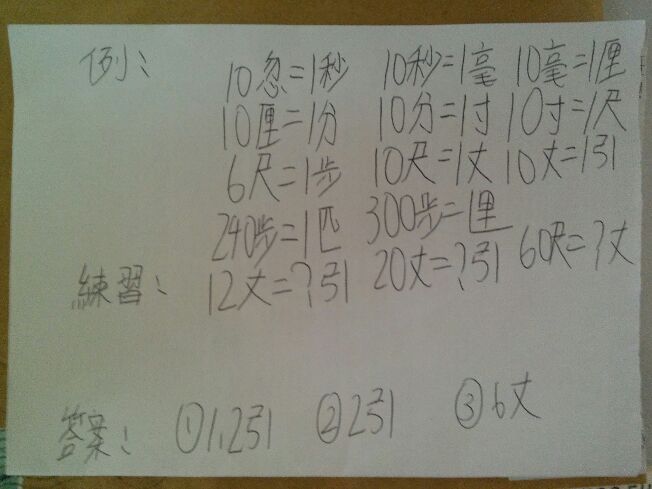 例： 10忽=1秒 10秒=1毫 10毫=1厘
10厘=1分 10分=1寸 10寸=1尺
6尺=1步 10尺=1丈 10丈=1引
240步=1匹 300步=1里
練習： 12丈=?引 20丈=?引 60尺=?丈
答案： ①1.2引 ②2引 ③6丈